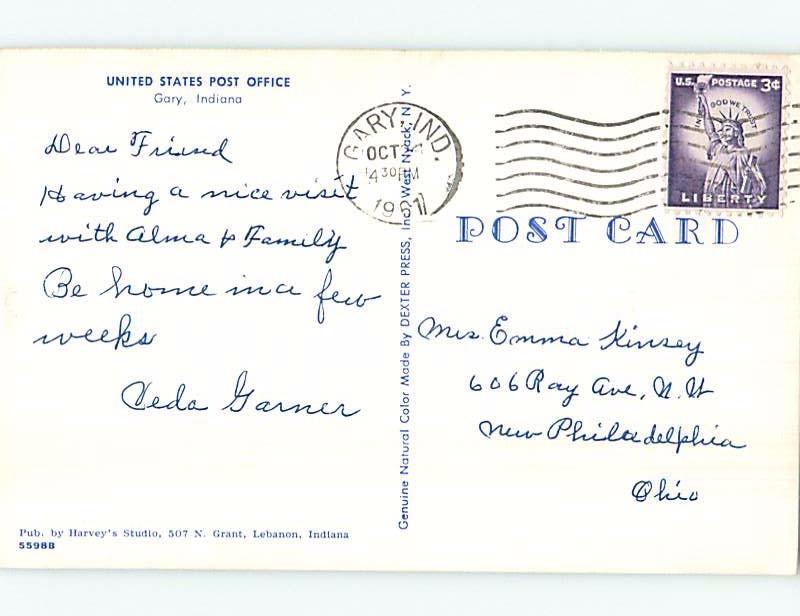 UNITED STATES POST OFFICE
Gary, Indiana
Dear Friend
Having a nice visit
with Alma & Family
Be home in a few
weeks
Veda Garner
Pub. by Harvey's Studio, 507 N. Grant, Lebanon, Indiana
5598B
Genuine Natural Color Made By DEXTER PRESS, Inc., West Nyack, N. Y.
GARY, IND.
OCT
4 30 PM
U.S. POSTAGE 3¢
IN GOD WE TRUST
LIBERTY
POST CARD
Mrs. Emma Kinsey
606 Ray Ave, N.W
New Philadelphia
Ohio